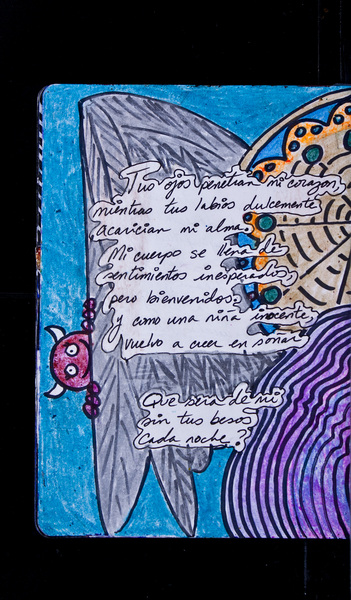 Tus ojos penetran mi corazon,
mientras tus labios dulcemente
acarician mi alma.
Mi cuerpo se llena de
sentimientos inesperados,
pero bienvenidos,
y como una niña inocente,
vuelvo a creer en soñar
Que sera de mi
sin tus besos
Cada noche?